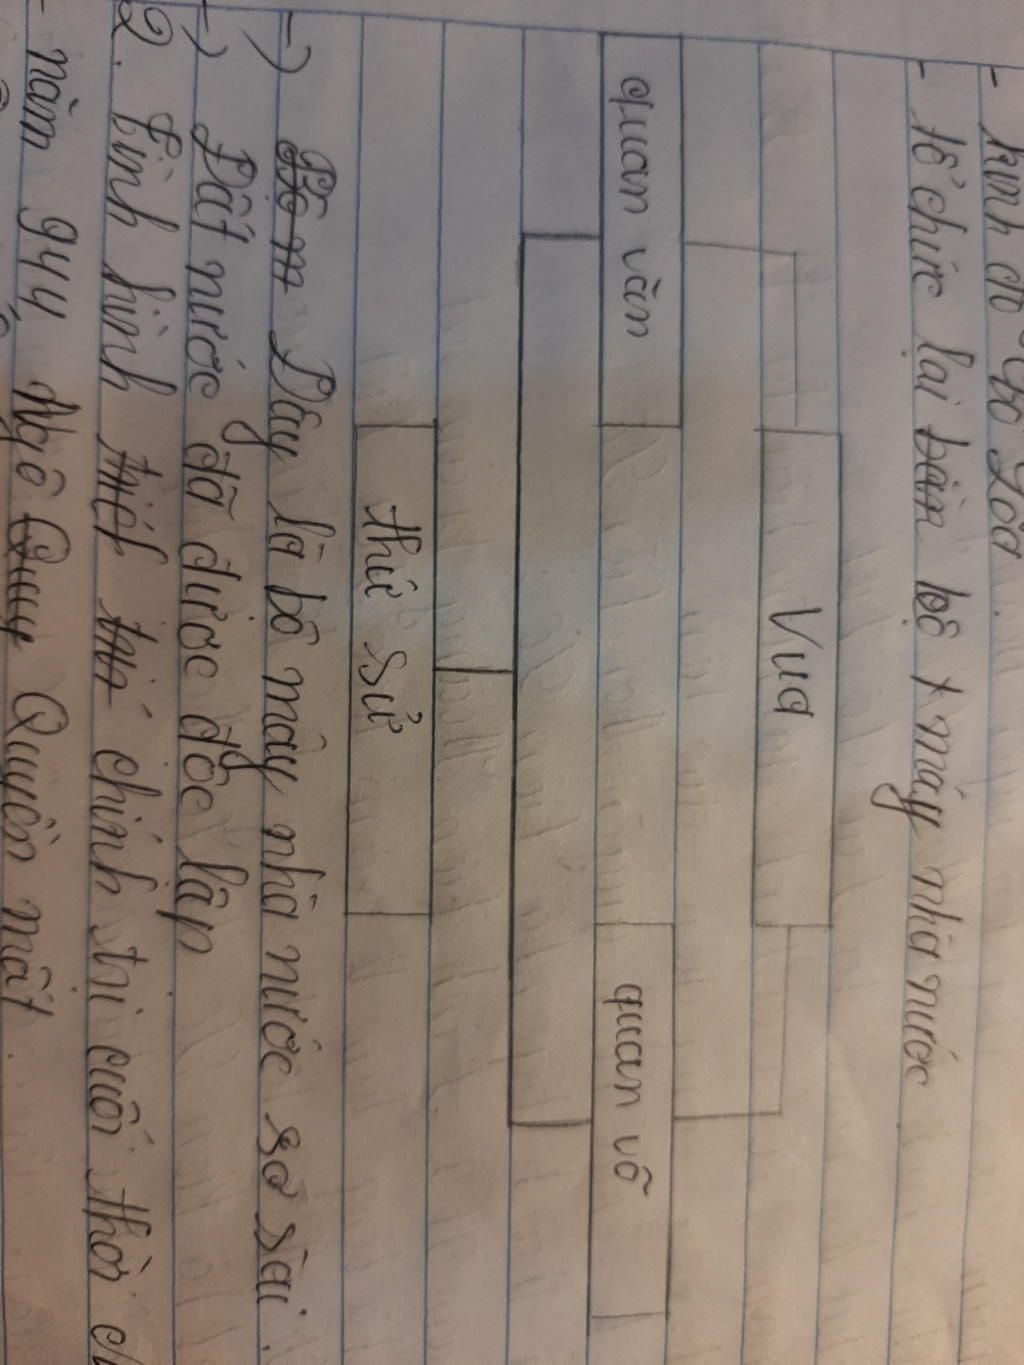 - kinh đô Cổ Loa.
- tổ chức lại bộ máy nhà nước
Vua
quan văn
quan võ
thứ sử
-) Đây là bộ máy nhà nước sơ sài.
-) Đất nước đã được độc lập
2. Tình hình chính trị cuối thời
- năm 944 Ngô Quyền mất.